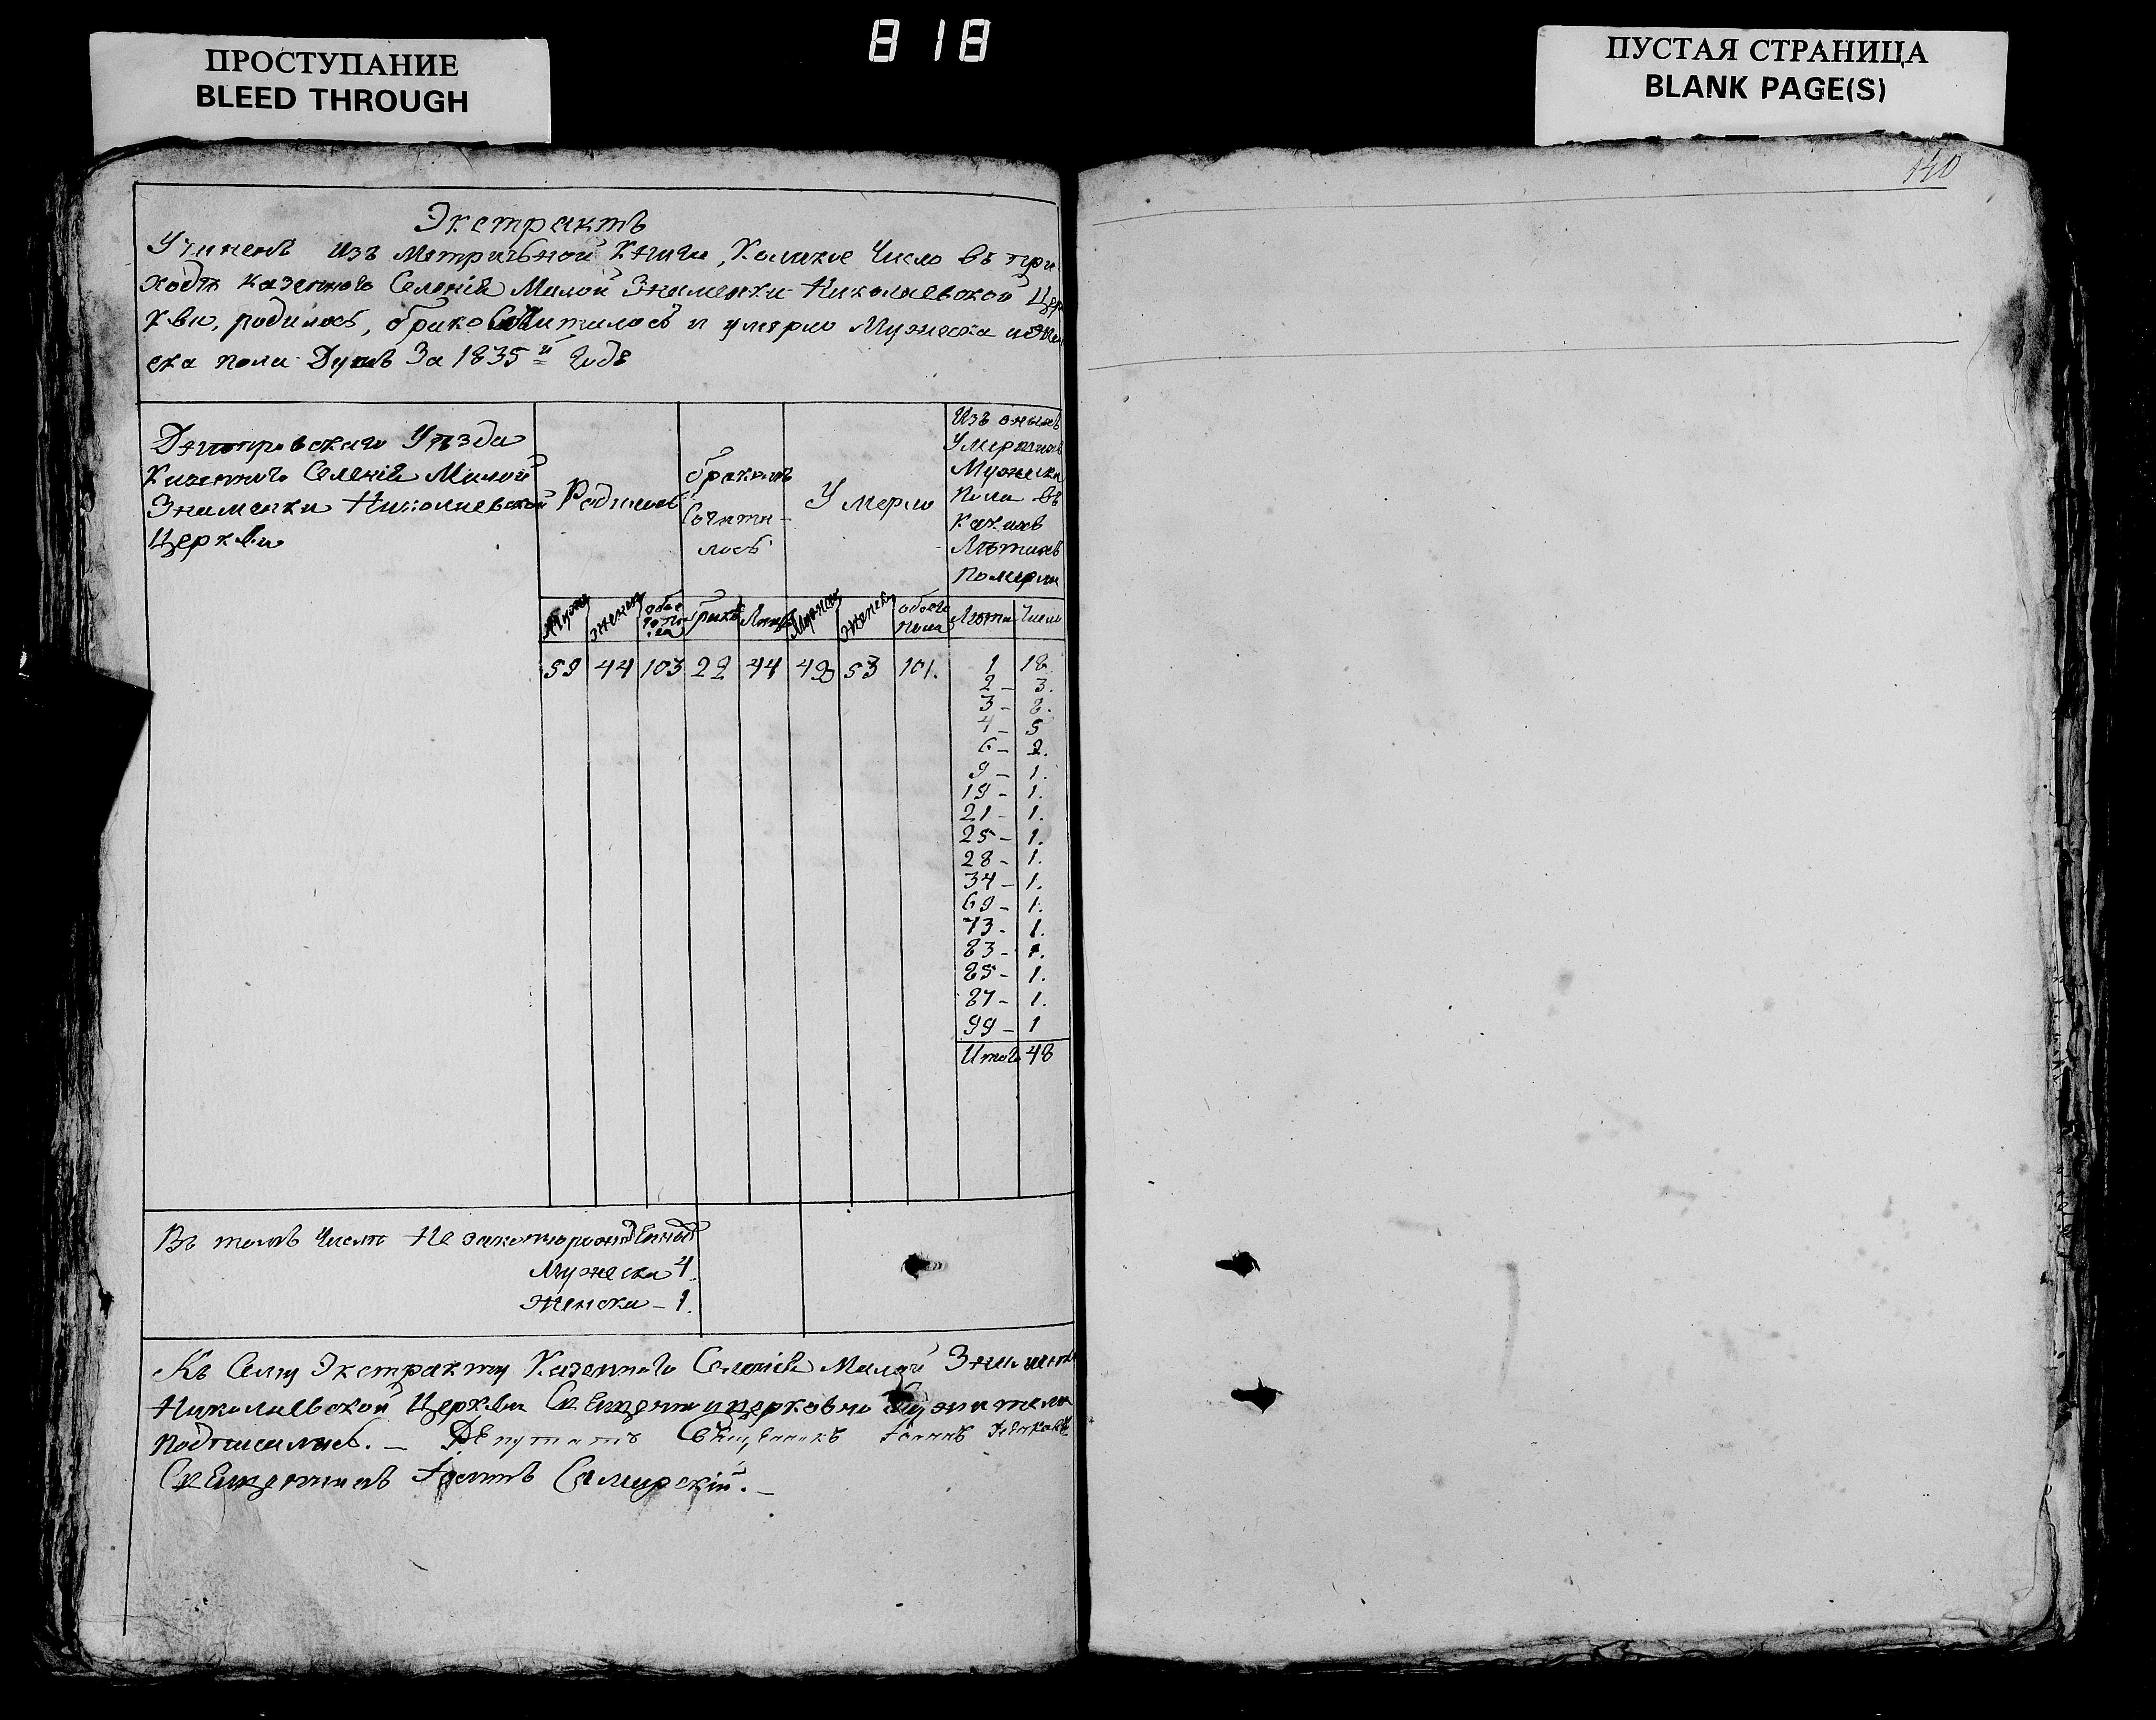 818
ПРОСТУПАНИЕ
BLEED THROUGH
ПУСТАЯ СТРАНИЦА
BLANK PAGE(S)
140
Экстрактъ
Учиненъ изъ Метричьной Книги, Коликое Число въ при
ходѣ казенного Селенія Малой Знаменки Николаевской Цер
кви, родилось, бракосочиталось и умерло Мужеска и жен
ска пола Душъ За 1835й Годъ
Днепровскаго Уѣзда
Казенного Селенія Малой
Знаменки Николаевской
Церкви
Родилось
бракомъ
Сочита-
лось
Умерло
Изъ оныхъ
Умершихъ
Мужеска
Пола въ
Какихъ
Лѣтахъ
Померли
Мужс женск обое го по ла браковъ Лицъ Мужска женск обоего пола Лѣта Число
59 44 103 22 44 48 53 101.
1 18
2 - 3.
3 - 8.
4 - 5
6 - 2.
9 - 1.
19 - 1.
21 - 1.
25 - 1.
28 - 1.
34 - 1.
69 - 1.
73 - 1.
83 - 1.
85 - 1.
87 - 1.
99 - 1
Итого 48
Въ томъ Числѣ Незаконнорожденныхъ
Мужеска 4.
Женска - 1.
Къ Сему Экстракту Казенного Селенія Малой Знаменки
Николаевской Церкви Священно и церковно Служители
подписались. - Депутатъ Священникъ Іоаннъ
Священникъ Іоаннъ Самирскій. -